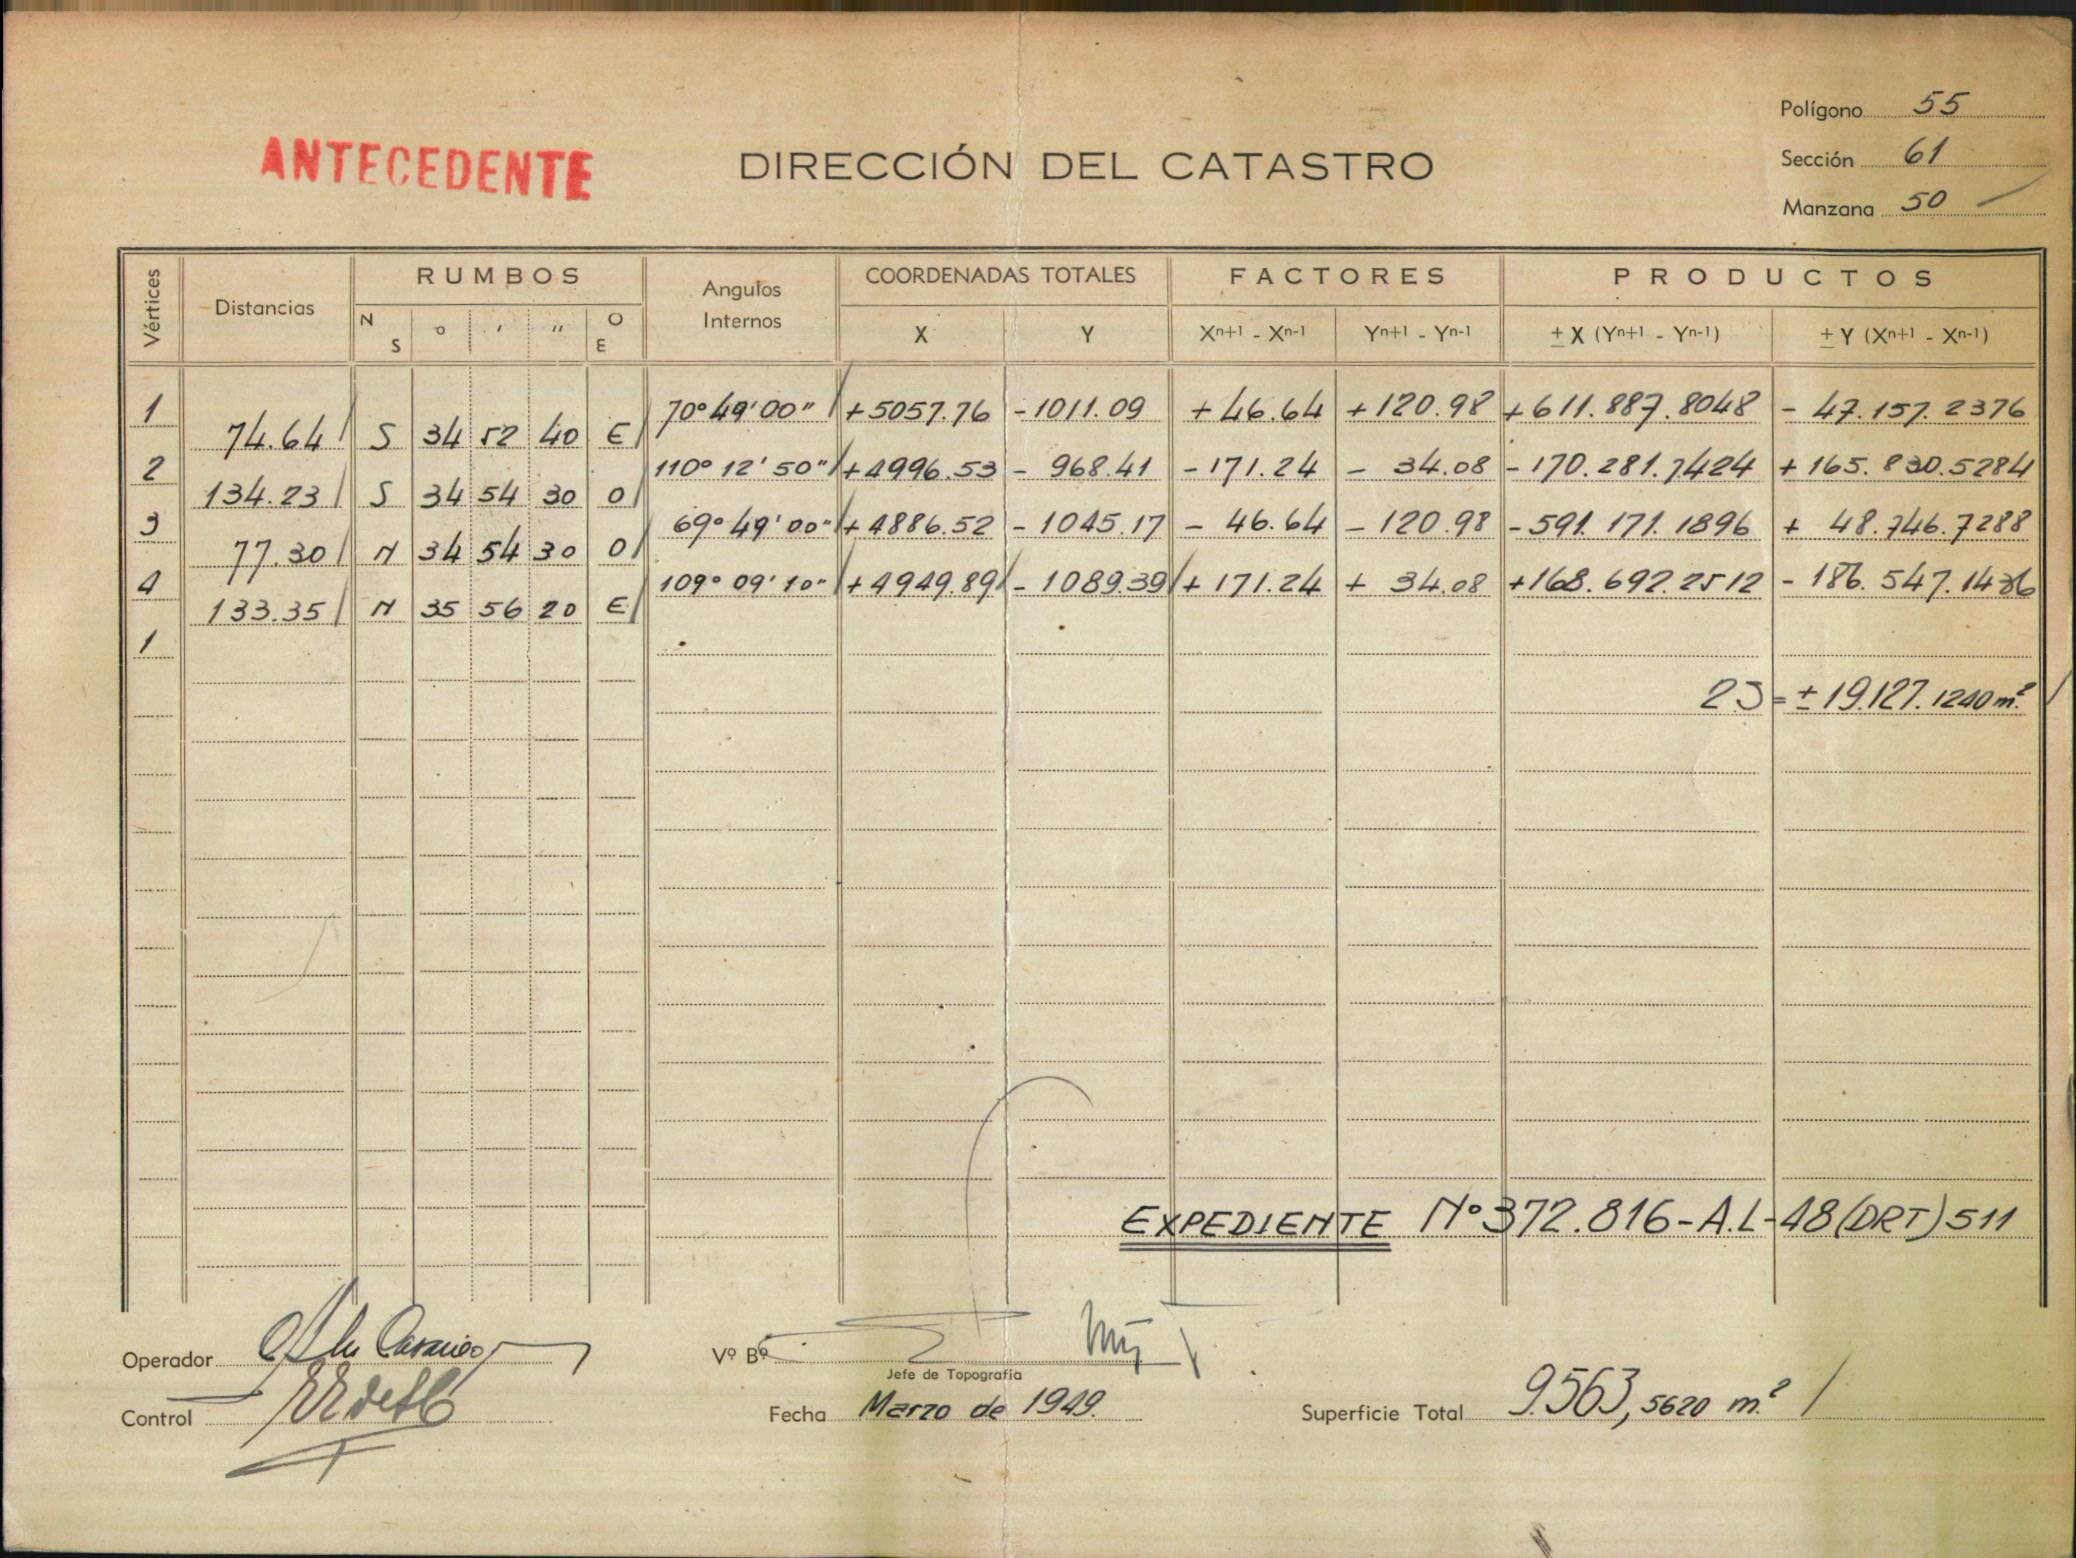 Polígono 55
ANTECEDENTE DIRECCIÓN DEL CATASTRO Sección 61
Manzana 50
Vértices Distancias RUMBOS Angulos Internos COORDENADAS TOTALES FACTORES PRODUCTOS
N S o ' '' O E X Y Xn+1 - Xn-1 Yn+1 - Yn-1 ± X (Yn+1 - Yn-1) ± Y (Xn+1 - Xn-1)
1 70° 49' 00" +5057.76 -1011.09 +46.64 +120.98 +611.887.8048 - 47.157.2376
74.64 S 34 52 40 E
2 110° 12' 50" +4996.53 - 968.41 -171.24 - 34.08 -170.281.7424 +165.830.5284
134.23 S 34 54 30 O
3 69° 49' 00" +4886.52 -1045.17 - 46.64 -120.98 -591.171.1896 + 48.746.7288
77.30 N 34 54 30 O
4 109° 09' 10" +4949.89 -1089.39 +171.24 + 34.08 +168.692.2512 -186.547.1436
133.35 N 35 56 20 E
1
2S = ±19.127.1240 m²
EXPEDIENTE Nº 372.816-A.L-48 (DRT) 511
Operador Vº Bº
Jefe de Topografía
Control Fecha Marzo de 1949. Superficie Total 9.563,5620 m²